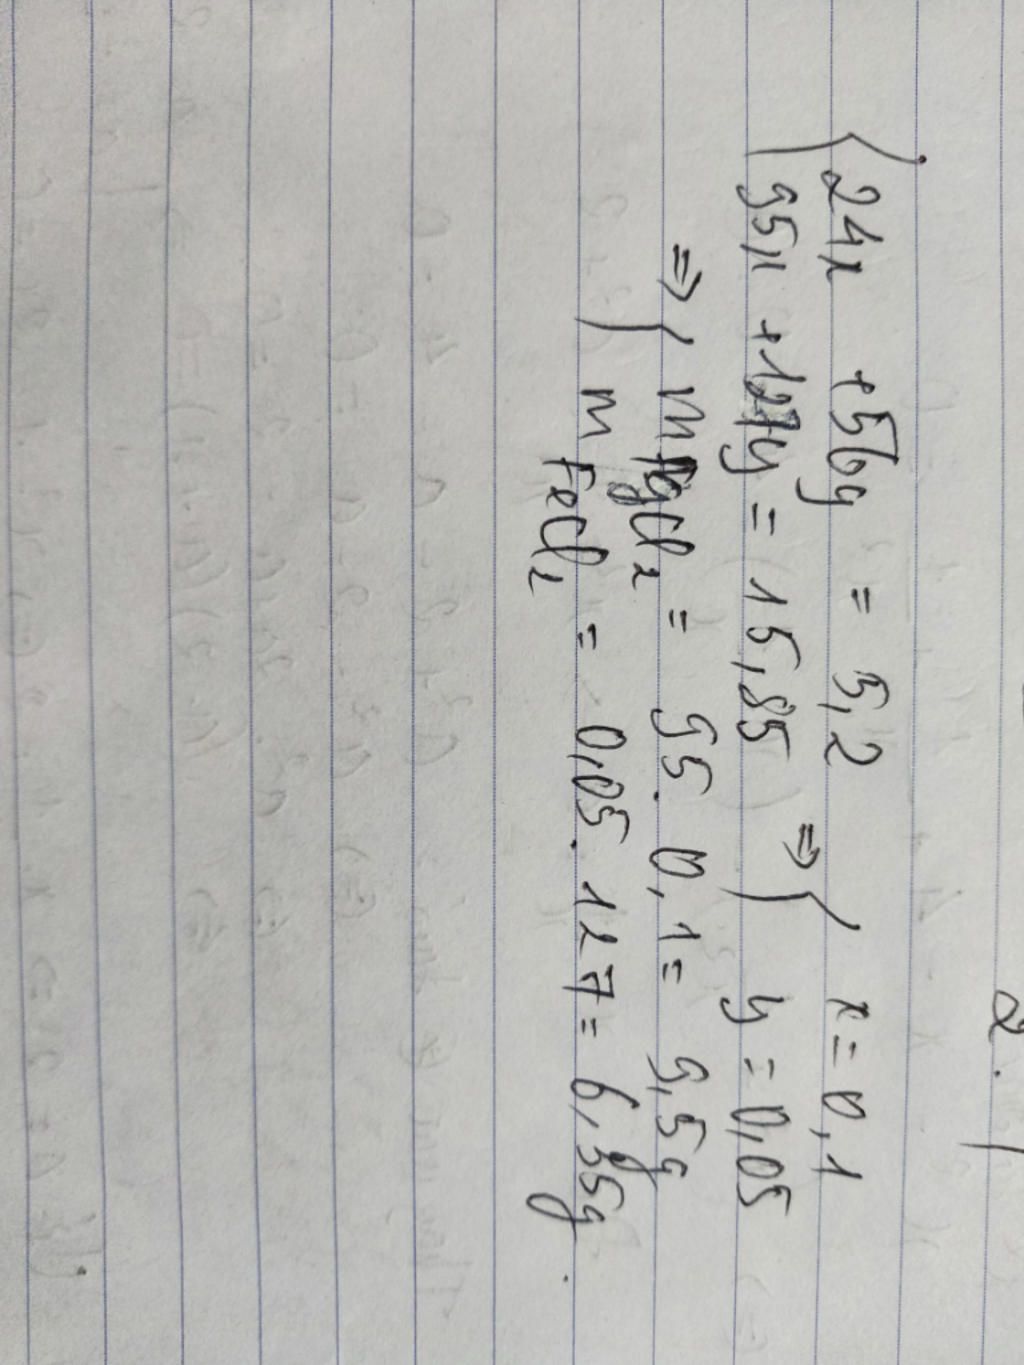 2.
{ 24x + 56y = 5,2
{ 95x + 127y = 15,85 => { x = 0,1
y = 0,05
=> { m MgCl₂ = 95. 0,1 = 9,5g
m FeCl₂ = 0,05. 127 = 6,35g.